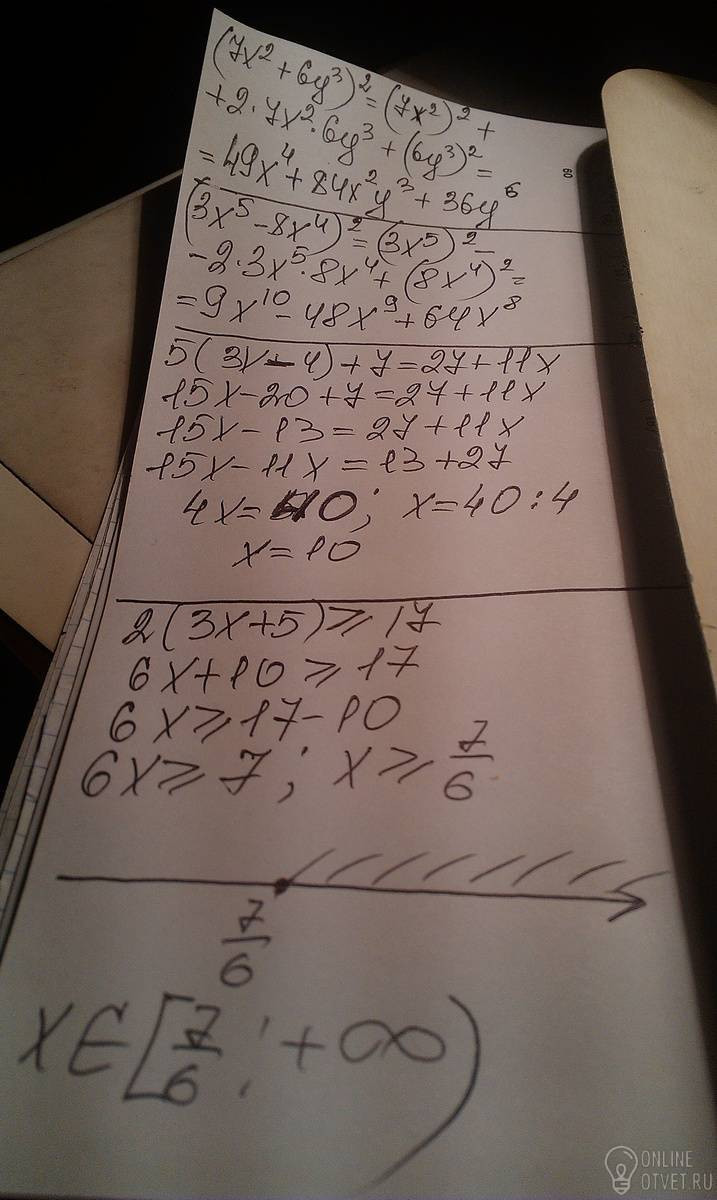 (7x² + 6y³)² = (7x²)² +
+ 2 · 7x² · 6y³ + (6y³)² =
= 49x⁴ + 84x²y³ + 36y⁶
(3x⁵ - 8x⁴)² = (3x⁵)² -
- 2 · 3x⁵ · 8x⁴ + (8x⁴)² =
= 9x¹⁰ - 48x⁹ + 64x⁸
5(3x - 4) + 7 = 27 + 11x
15x - 20 + 7 = 27 + 11x
15x - 13 = 27 + 11x
15x - 11x = 13 + 27
4x = 40; x = 40 : 4
x = 10
2(3x + 5) ≥ 17
6x + 10 ≥ 17
6x ≥ 17 - 10
6x ≥ 7; x ≥ 7/6
7/6
x ∈ [7/6; +∞)
ONLINE
OTVET.RU